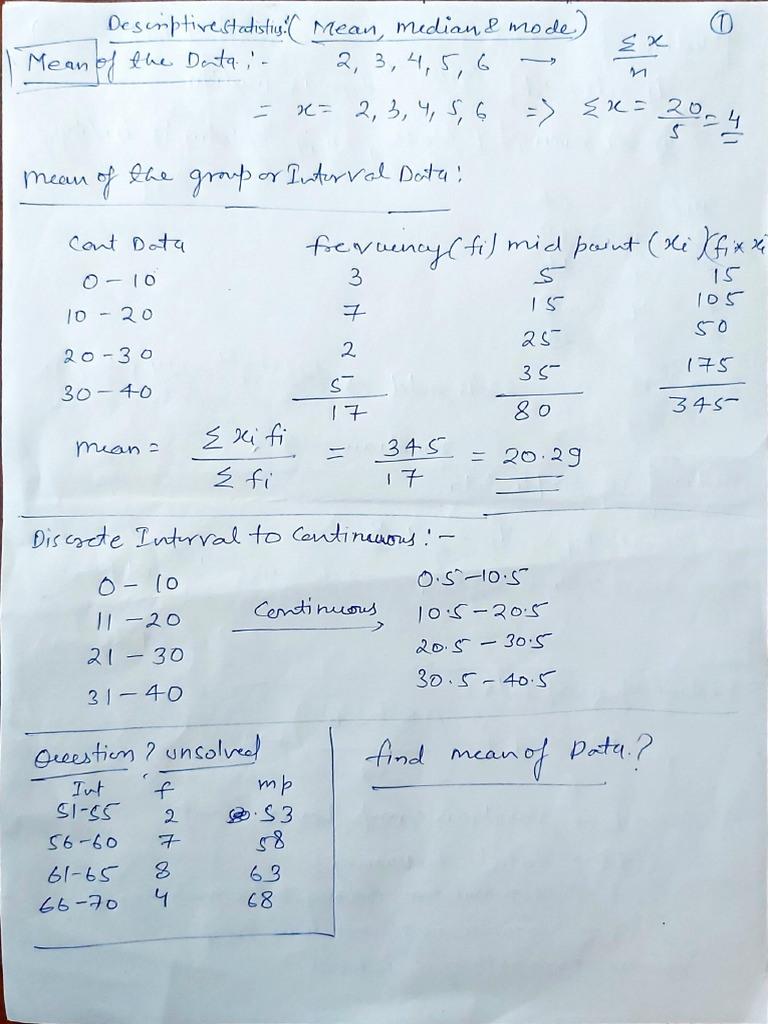 Descriptive statistics:( Mean, median & mode) ①
1 Mean of the Data :- 2, 3, 4, 5, 6 → Σx/n
= x = 2, 3, 4, 5, 6 => Σx = 20/5 = 4
Mean of the group or Interval Data :
Cont Data frequency (fi) mid point (xi) (fi × xi
0 – 10 3 5 15
10 – 20 7 15 105
20 – 30 2 25 50
30 – 40 5 35 175
17 80 345
mean = Σ xi fi / Σ fi = 345/17 = 20.29
Discrete Interval to Continuous :-
0 – 10 0.5 – 10.5
11 – 20 Continuous → 10.5 – 20.5
21 – 30 20.5 – 30.5
31 – 40 30.5 – 40.5
Question ? unsolved find mean of Data.?
Int f mp
51-55 2 53
56-60 7 58
61-65 8 63
66-70 4 68